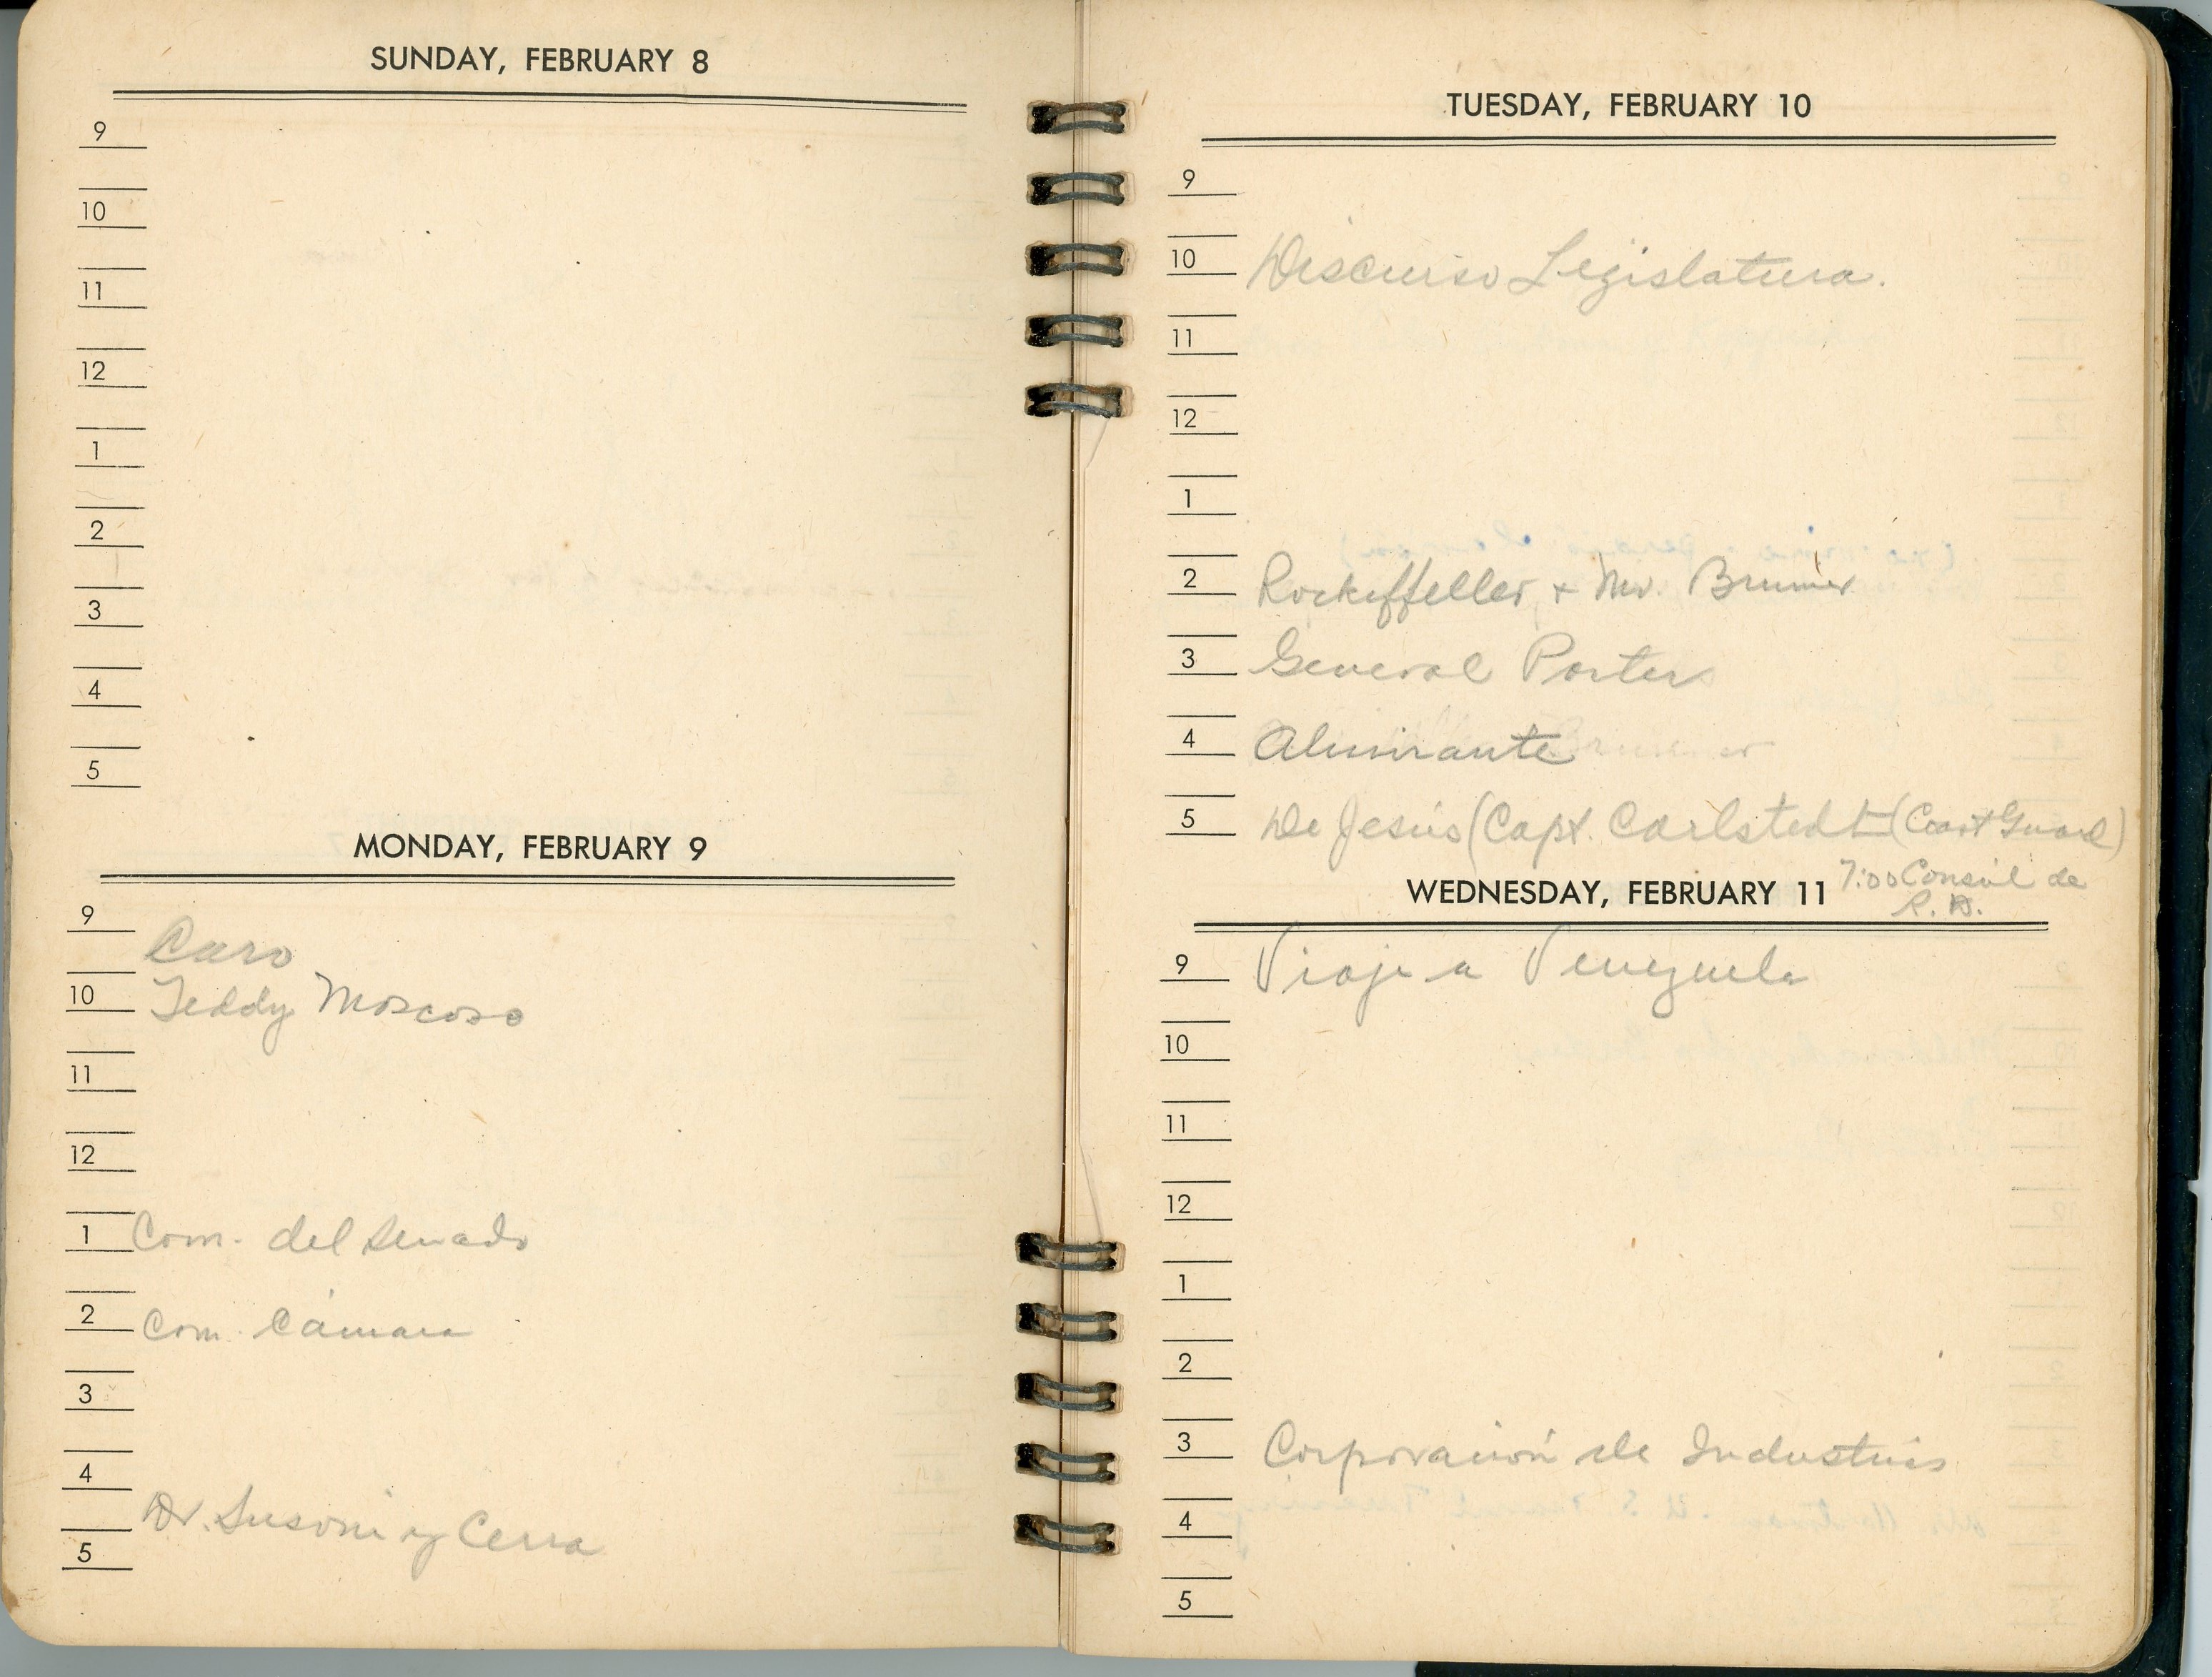 SUNDAY, FEBRUARY 8
9
10
11
12
1
2
3
4
5
MONDAY, FEBRUARY 9
9
Caro
10 Teddy Moscoso
11
12
1 Com. del Senado
2 Com. Cámara
3
4
Dr. Susoni y Cerra
5
TUESDAY, FEBRUARY 10
9
10 Discurso Legislatura.
11
12
1
2 Rockeffeller + Mr. Brunner
3 General Porter
4 Almirante
5 De Jesús (Capt. Carlstedt (Coast Guard)
7:00 Consúl de
R. D.
WEDNESDAY, FEBRUARY 11
9 Viaje a Venezuela
10
11
12
1
2
3 Corporación de Industrias
4
5